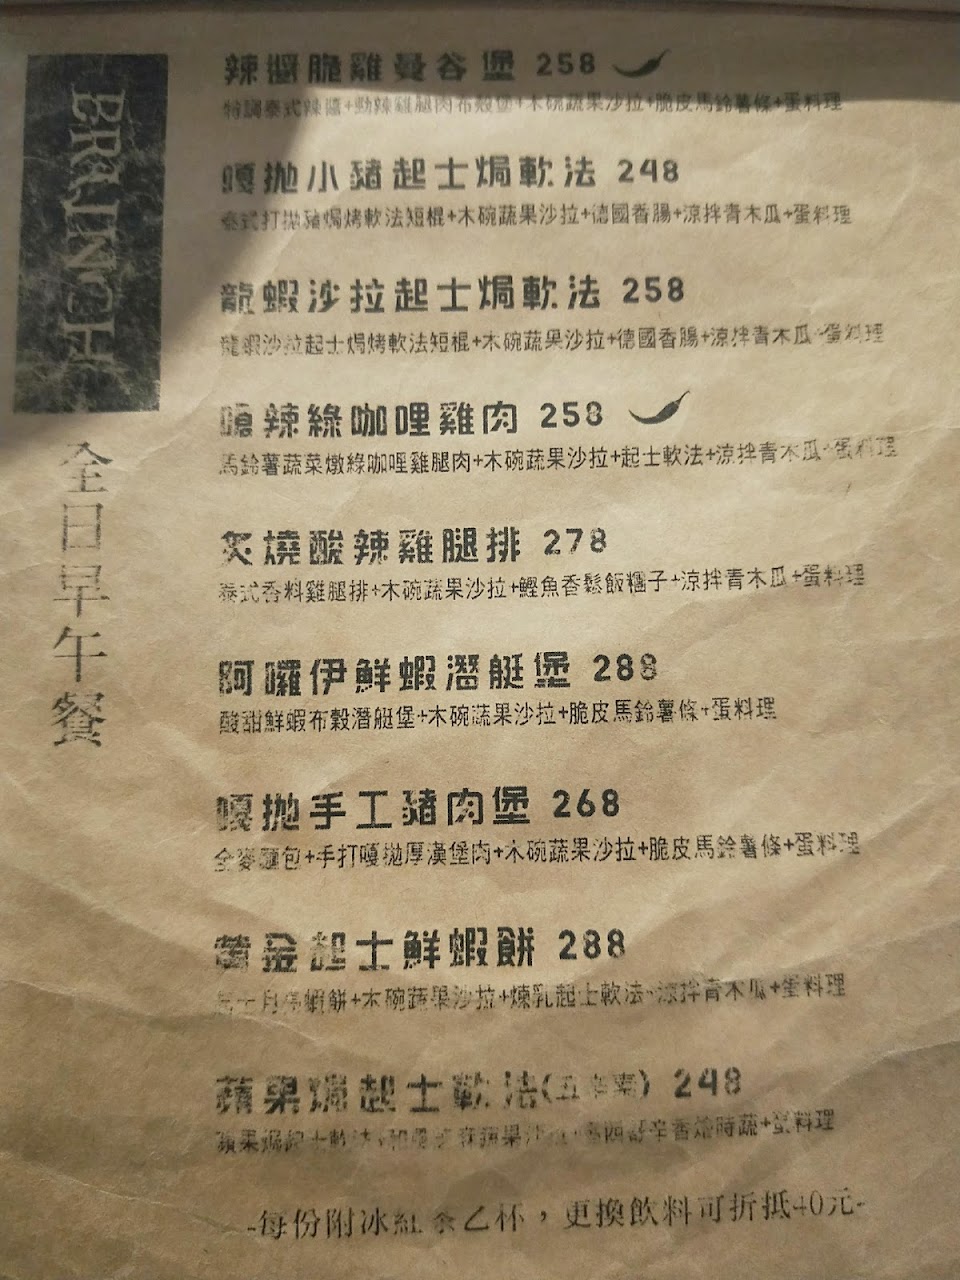 BRUNCH
全日早午餐
辣醬脆雞曼谷堡 258
特調泰式辣醬+勁辣雞腿肉布穀堡+木碗蔬果沙拉+脆皮馬鈴薯條+蛋料理
嘎拋小豬起士焗軟法 248
泰式打拋豬焗烤軟法短棍+木碗蔬果沙拉+德國香腸+涼拌青木瓜+蛋料理
龍蝦沙拉起士焗軟法 258
龍蝦沙拉起士焗烤軟法短棍+木碗蔬果沙拉+德國香腸+涼拌青木瓜+蛋料理
嗆辣綠咖哩雞肉 258
馬鈴薯蔬菜燉綠咖哩雞腿肉+木碗蔬果沙拉+起士軟法+涼拌青木瓜+蛋料理
炙燒酸辣雞腿排 278
泰式香料雞腿排+木碗蔬果沙拉+鰹魚香鬆飯糰子+涼拌青木瓜+蛋料理
阿囉伊鮮蝦潛艇堡 288
酸甜鮮蝦布穀潛艇堡+木碗蔬果沙拉+脆皮馬鈴薯條+蛋料理
嘎拋手工豬肉堡 268
全麥麵包+手打嘎拋厚漢堡肉+木碗蔬果沙拉+脆皮馬鈴薯條+蛋料理
黃金起士鮮蝦餅 288
起士月亮蝦餅+木碗蔬果沙拉+煉乳起士軟法+涼拌青木瓜+蛋料理
蘋果焗起士軟法(五辛素) 248
蘋果焗起士軟法+和風 蘋果沙拉+墨西哥辛香燴時蔬+蛋料理
-每份附冰紅茶乙杯，更換飲料可折抵40元-